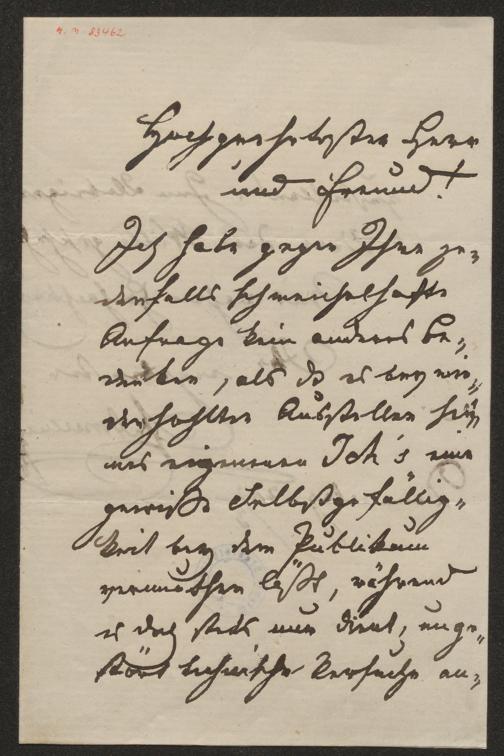 H. N. 83462
Hochgeehrtester Herr
und Freund!
Ich habe gegen Ihre je=
denfalls schmeichelhafte
Anfrage kein anderes Be=
denken, als daß es bey wie=
derhohlter Ausstellen
eigenen Ich's eine
gewisse Selbstgefällig=
keit bey dem Publikum
vermuthen läßt, während
es doch stets nur dient, unge=
stört technische Versuche an=